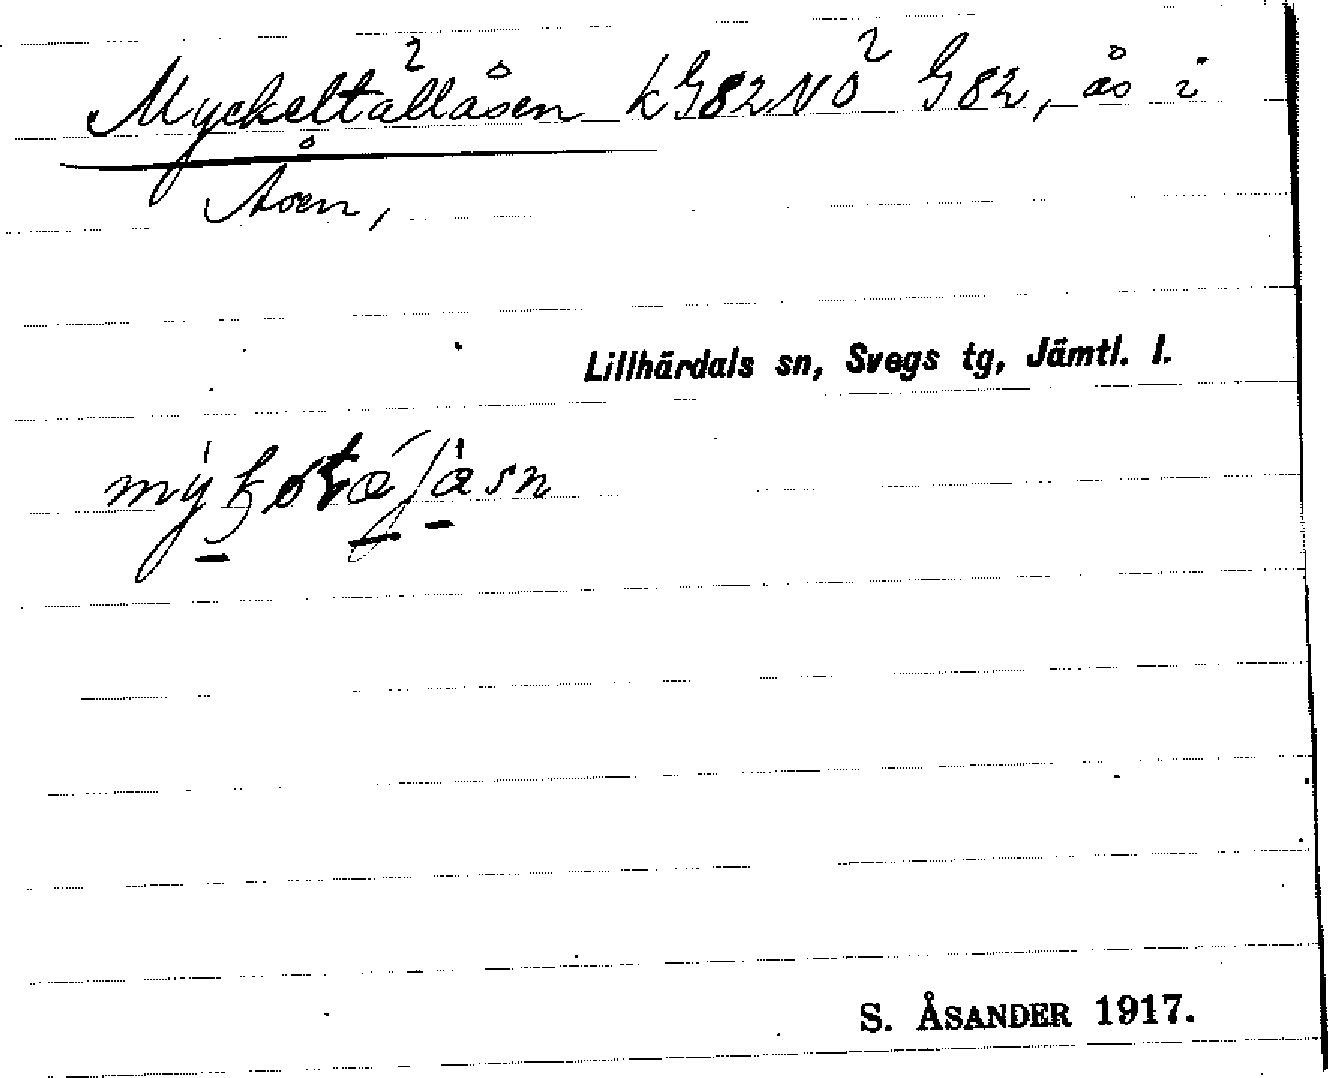 Myckeltallåsen k G82NO² G 82, ås i
Åsen,
Lillhärdals sn, Svegs tg, Jämtl. l.
S. ÅSANDER 1917.